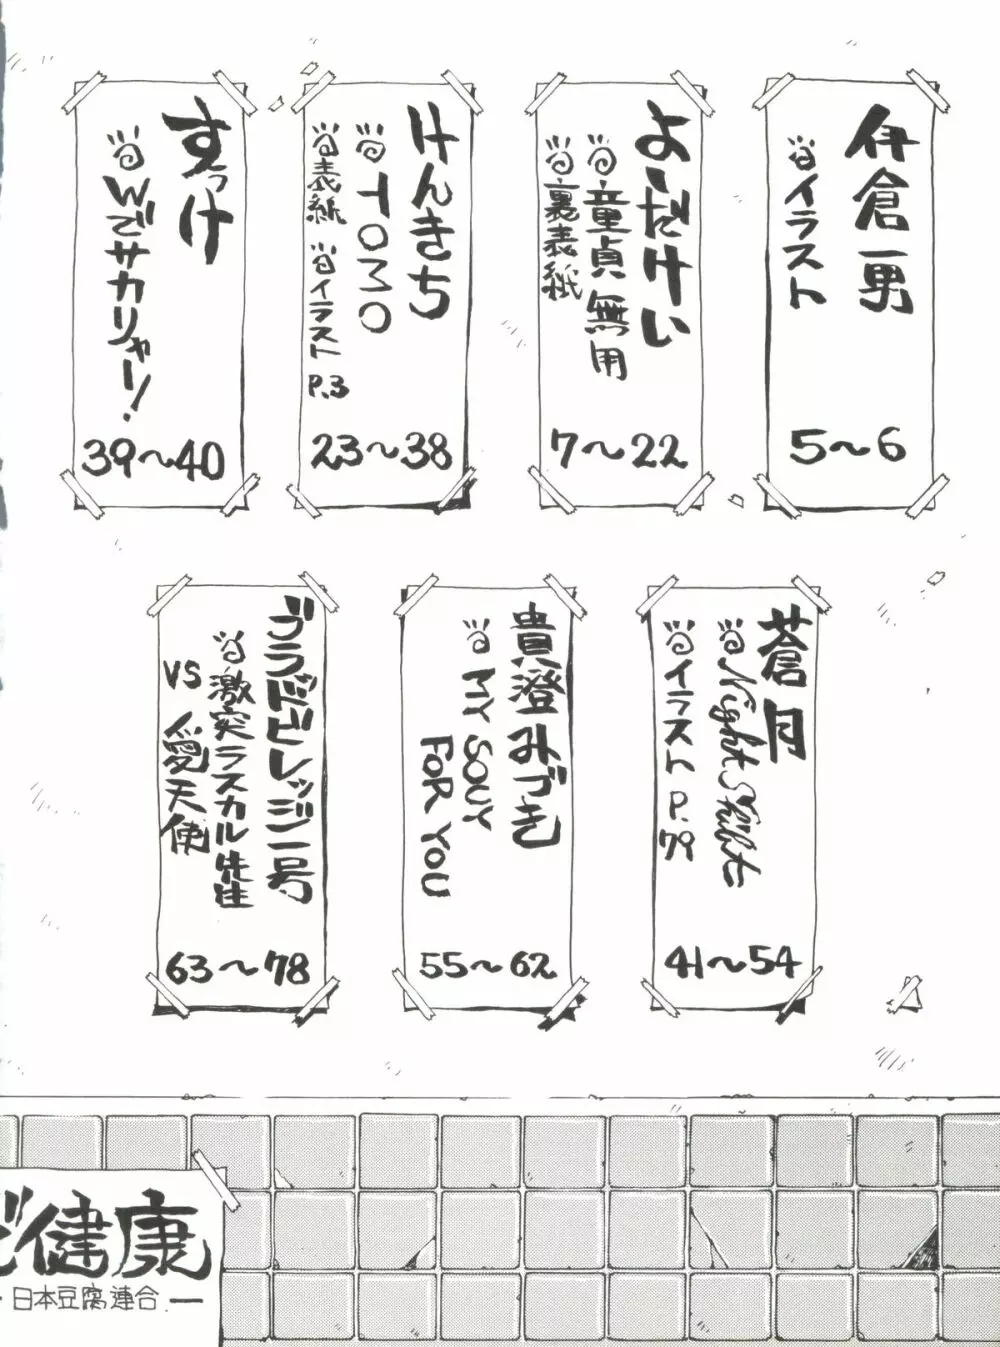 伊倉一男
イラスト
5〜6
よしだけい
童貞無用
裏表紙
7〜22
けんきち
TOMO
表紙 イラスト P.3
23〜38
すっけ
Wでサカリャー!
39〜40
蒼月
Night Shift
イラスト P.79
41〜54
貴澄みづき
MY SOUY
FOR YOU
55〜62
ブラドビレッジ一号
激突ラスカル先生
VS 愛天使
63〜78
で健康
日本豆腐連合